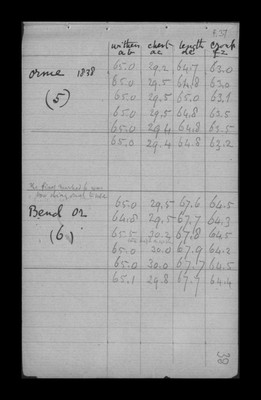 withers chest length croup
ab ac dc
Orme 1838
(5)
65.0 29.2 64.7 63.0
65.0 29.5 64.8 63.0
65.0 29.5 65.0 63.1
65.0 29.5 64.8 62.5
65.0 29.4 64.8 63.5
65.0 29.4 64.8 63.2
Bend Or
(6)
65.0 29.5 67.6 64.5
64.8 29.5 67.7 64.3
65.5 30.2 67.8 64.5
65.0 30.0 67.9 64.2
65.0 30.0 67.7 64.5
65.1 29.8 67.7 64.4